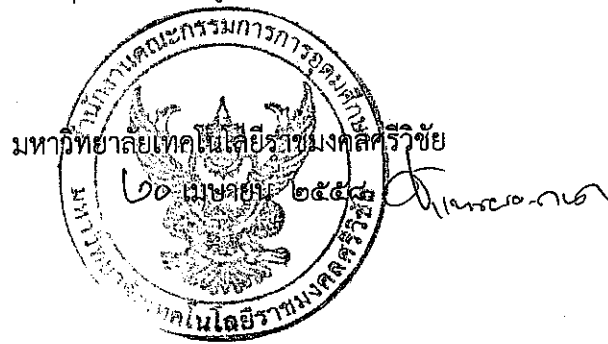 สำนักงานคณะกรรมการการอุดมศึกษา
มหาวิทยาลัยเทคโนโลยีราชมงคลศรีวิชัย
๒๐ เมษายน ๒๕๕๘
มหาวิทยาลัยเทคโนโลยีราชมงคลศรีวิชัย